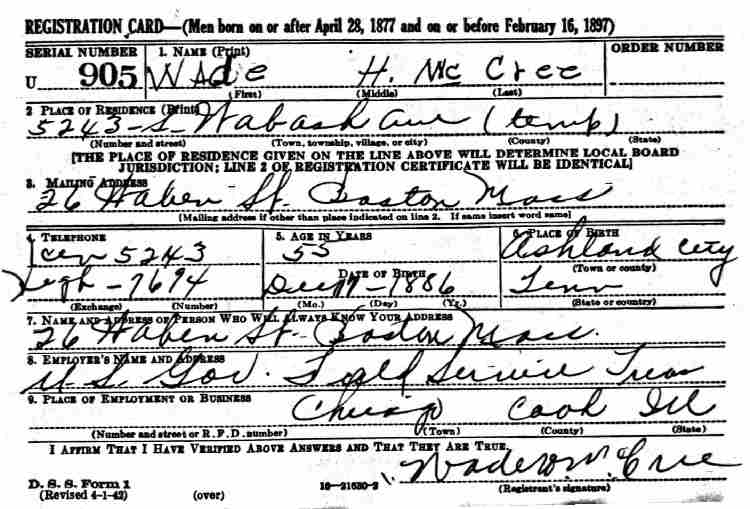 REGISTRATION CARD—(Men born on or after April 28, 1877 and on or before February 16, 1897)
SERIAL NUMBER 1. NAME (Print) ORDER NUMBER
U 905 Wade H. Mc Cree
(First) (Middle) (Last)
2 PLACE OF RESIDENCE (Print)
5243-S- Wabash Ave (temp)
(Number and street) (Town, township, village, or city) (County) (State)
[THE PLACE OF RESIDENCE GIVEN ON THE LINE ABOVE WILL DETERMINE LOCAL BOARD
JURISDICTION; LINE 2 OF REGISTRATION CERTIFICATE WILL BE IDENTICAL]
3. MAILING ADDRESS
26 Haben St. Boston Mass
[Mailing address if other than place indicated on line 2. If same insert word same]
4. TELEPHONE 5. AGE IN YEARS 6. PLACE OF BIRTH
5243 55 Ashland City
DATE OF BIRTH (Town or county)
-7694 Dec 19-1886 Tenn
(Exchange) (Number) (Mo.) (Day) (Yr.) (State or country)
7. NAME AND ADDRESS OF PERSON WHO WILL ALWAYS KNOW YOUR ADDRESS
26 Haben St- Boston Mass.
8. EMPLOYER'S NAME AND ADDRESS
U.S. Gov. Field Service Treas
9. PLACE OF EMPLOYMENT OR BUSINESS
Chicago Cook Ill
(Number and street or R. F. D. number) (Town) (County) (State)
I AFFIRM THAT I HAVE VERIFIED ABOVE ANSWERS AND THAT THEY ARE TRUE.
D. S. S. Form 1
(Revised 4-1-42) (over) 16—21630-2 (Registrant's signature)